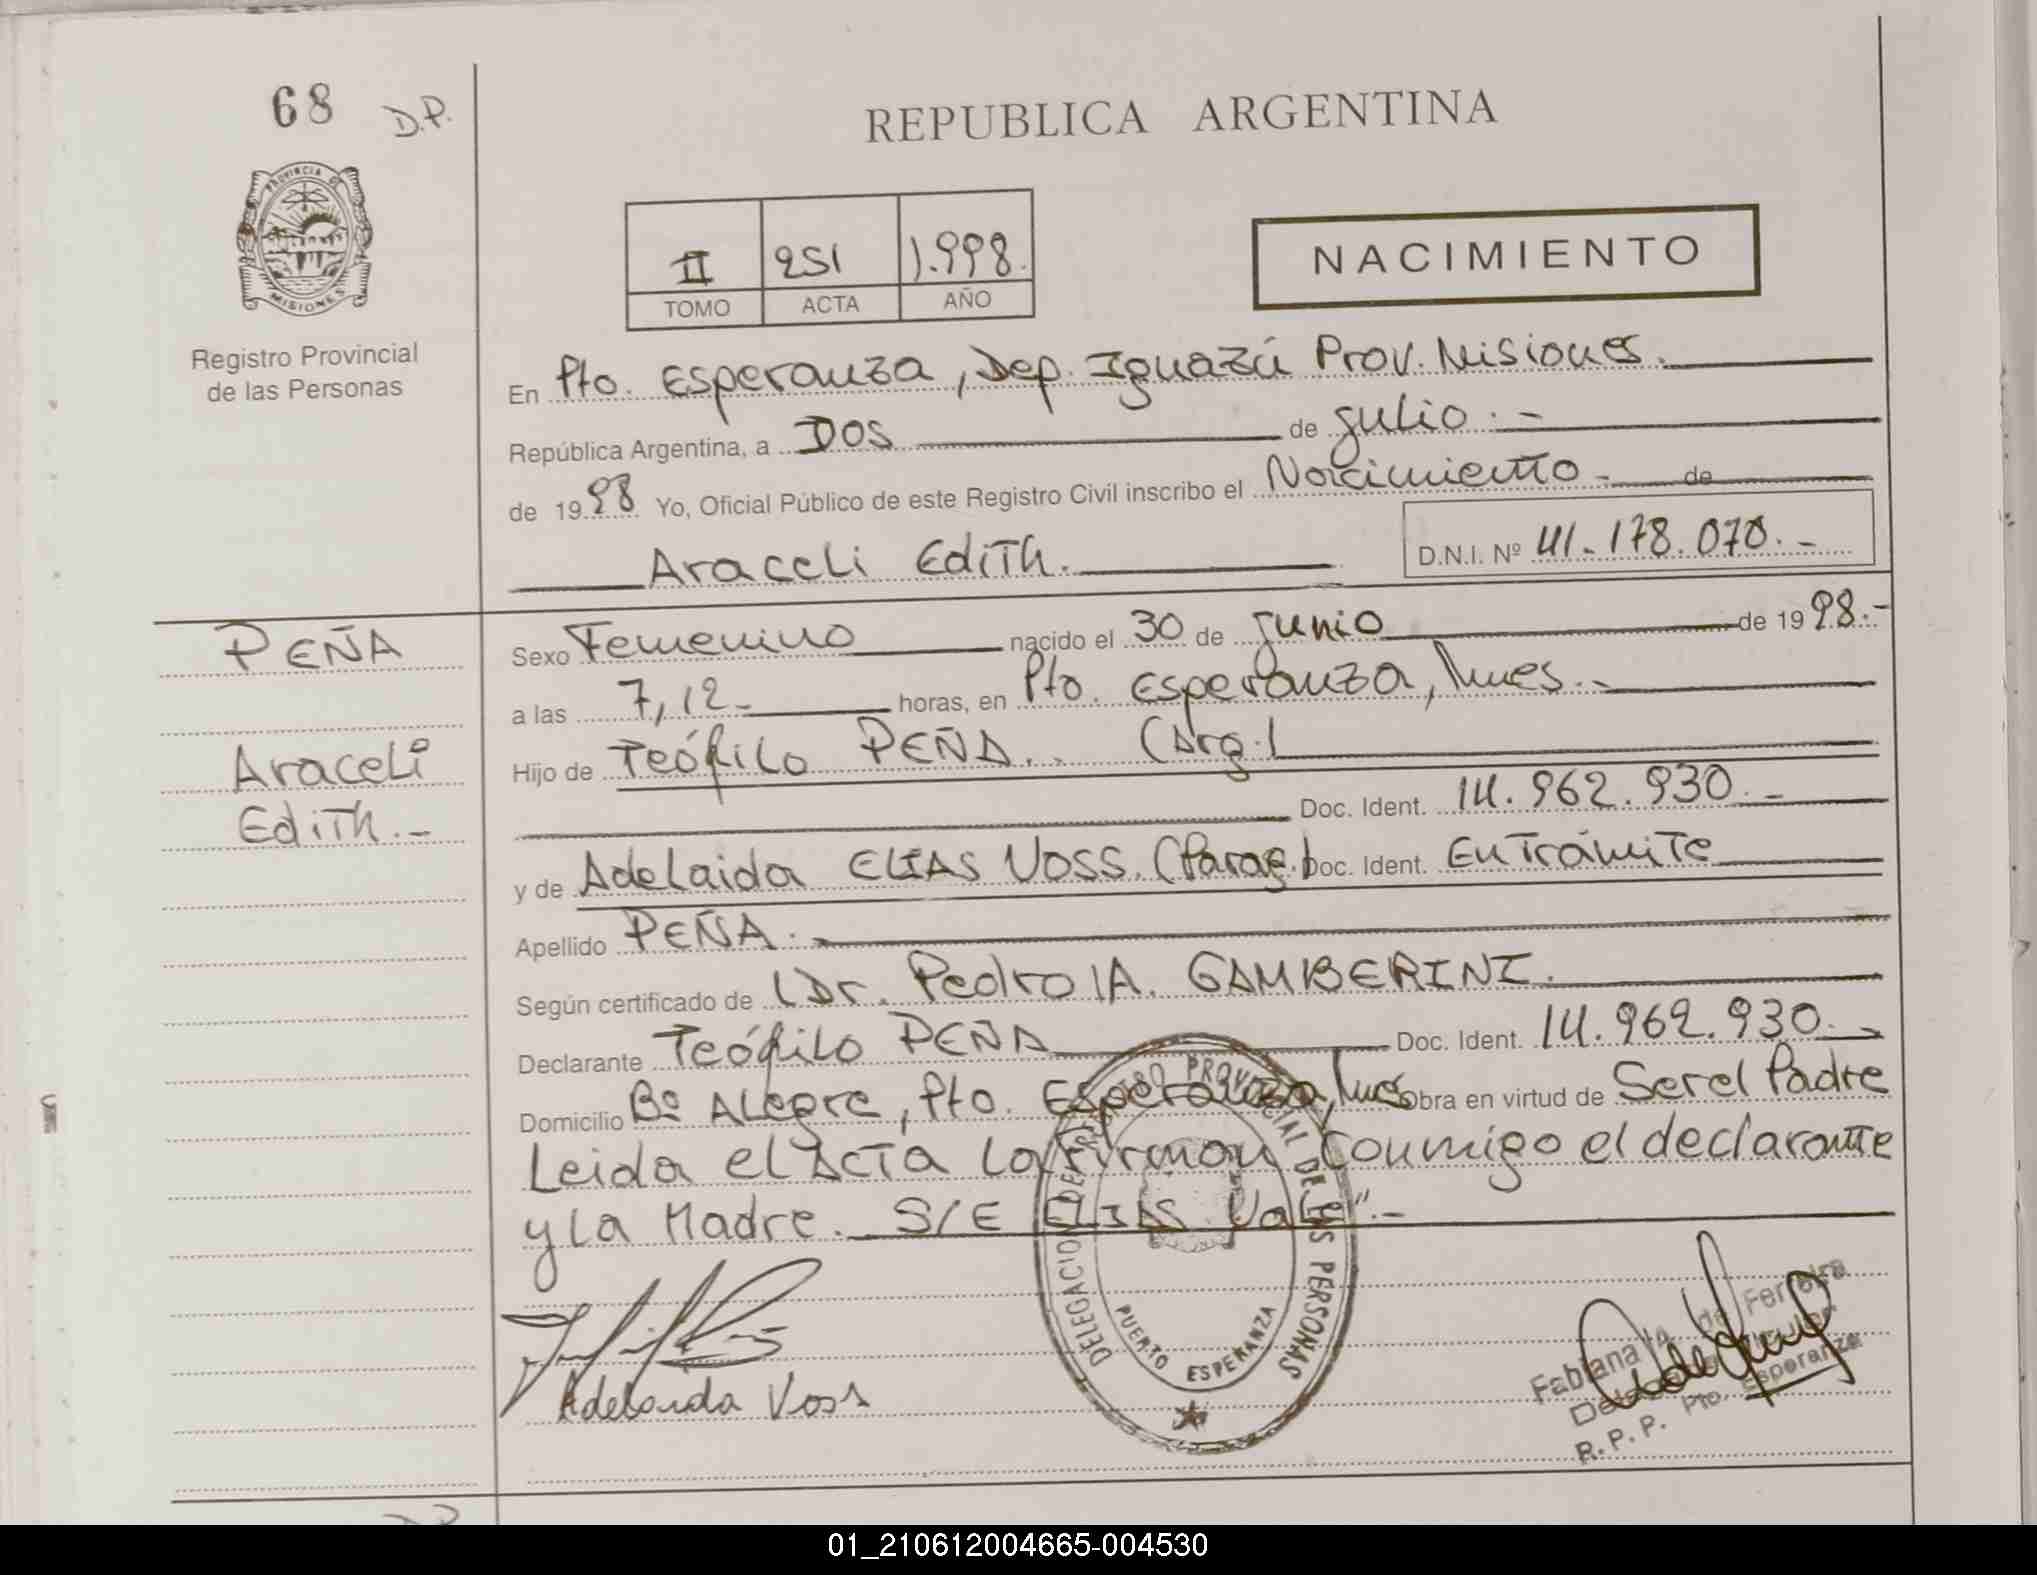 68 D.P.
REPUBLICA ARGENTINA
PROVINCIA DE
MISIONES
II 251 1.998.
TOMO ACTA AÑO
NACIMIENTO
Registro Provincial
de las Personas
En Pto. Esperanza, Dep. Iguazú Prov. Misiones.
República Argentina, a DOS de julio.-
de 1998 Yo, Oficial Público de este Registro Civil inscribo el Nacimiento - de
Araceli Edith.
D.N.I. Nº 41.178.070.-
PEÑA
Araceli
Edith.-
Sexo Femenino nacido el 30 de junio de 1998.-
a las 7,12- horas, en Pto. Esperanza, Mnes.-
Hijo de Teófilo PEÑA.. (Arg.)
Doc. Ident. 14.962.930.-
y de Adelaida ELIAS VOSS. (Parag.) Doc. Ident. En Trámite
Apellido PEÑA.-
Según certificado de (Dr. Pedro A. GAMBERINI.
Declarante Teófilo PEÑA Doc. Ident. 14.962.930.-
Domicilio Bº Alegre, Pto. Esperanza, Mnes Obra en virtud de Ser el Padre
Leida el Acta La Firman Conmigo el declarante
y La Madre. S/E ELIAS Vale".-
DELEGACION DE REGISTRO PROVINCIAL DE LAS PERSONAS
PUERTO ESPERANZA
Adelaida Voss
Fabiana de Ferreira
R.P.P. Pto. Esperanza
D.P.
01_210612004665-004530